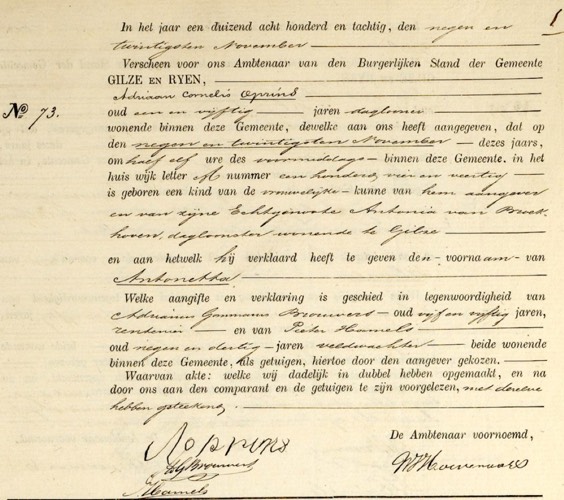 1
In het jaar een duizend acht honderd en tachtig, den negen en
twintigsten November
Verscheen voor ons Ambtenaar van den Burgerlijken Stand der Gemeente
GILZE EN RYEN,
Adriaan Cornelis Oprins
oud een en vijftig jaren daglooner
Nº 73.
wonende binnen deze Gemeente, dewelke aan ons heeft aangegeven, dat op
den negen en twintigsten November dezes jaars,
om half elf ure des voormiddags binnen deze Gemeente. in het
huis wijk letter M nummer een honderd vier en veertig
is geboren een kind van de vrouwelijke kunne van hem aangever
en van zijne Echtgenoote Antonia van Broek-
hoven, dagloonster wonende te Gilze
en aan hetwelk hij verklaard heeft te geven den voornaam van
Antonetta
Welke aangifte en verklaring is geschied in tegenwoordigheid van
Adrianus Brouwers oud vijf en vijftig jaren,
rentenier en van Peeter Hamels
oud negen en dertig jaren veldwachter beide wonende
binnen deze Gemeente, als getuigen, hiertoe door den aangever gekozen.
Waarvan akte: welke wij dadelijk in dubbel hebben opgemaakt, en na
door ons aan den comparant en de getuigen te zijn voorgelezen, met dezelve
hebben geteekend.
Oprins
De Ambtenaar voornoemd,
Brouwers
Hamels